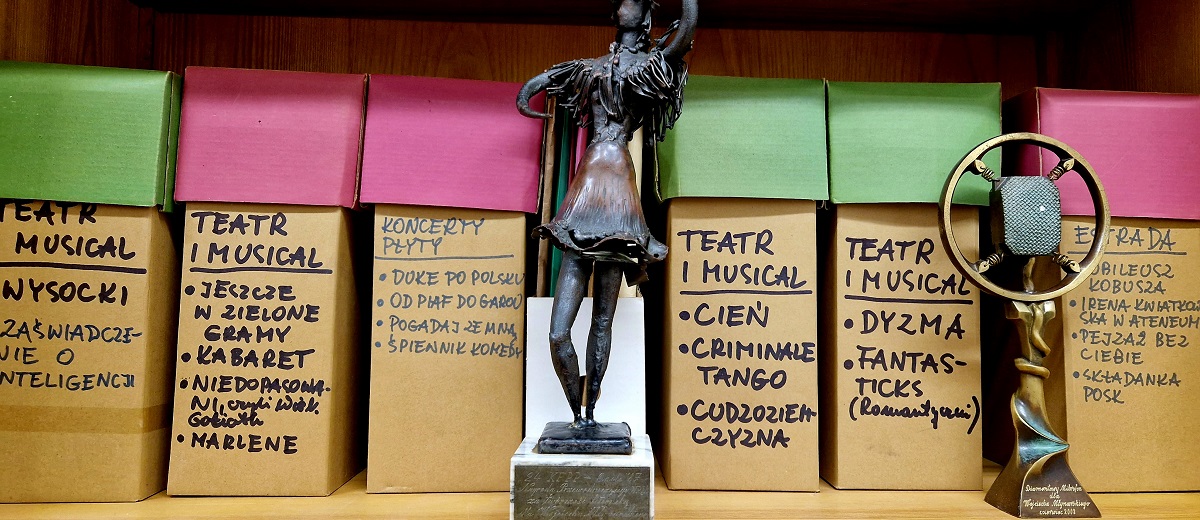 TEATR
MUSICAL
WYSOCKI
ZAŚWIADCZE-
NIE O
INTELIGENCJI
TEATR
I MUSICAL
• JESZCZE
W ZIELONE
GRAMY
• KABARET
• NIEDOPASOWA-
NI, czyli
• MARLENE
KONCERTY
PŁYTY
• DUKE PO POLSKU
• OD PIAF DO GAROU
• POGADAJ ZE MNĄ
• ŚPIEWNIK KOMEDY
TEATR
I MUSICAL
• CIEŃ
• CRIMINALE
TANGO
• CUDZOZIEM-
CZYZNA
TEATR
I MUSICAL
• DYZMA
• FANTAS-
TICKS
(Romantyczni)
ESTRADA
JUBILEUSZ
KOBUSZA
• IRENA KWIATKOW-
SKA W ATENEUM
• PEJZAŻ BEZ
CIEBIE
• SKŁADANKA
POSK
Diamentowy Mikrofon
dla
Wojciecha Młynarskiego
czerwiec